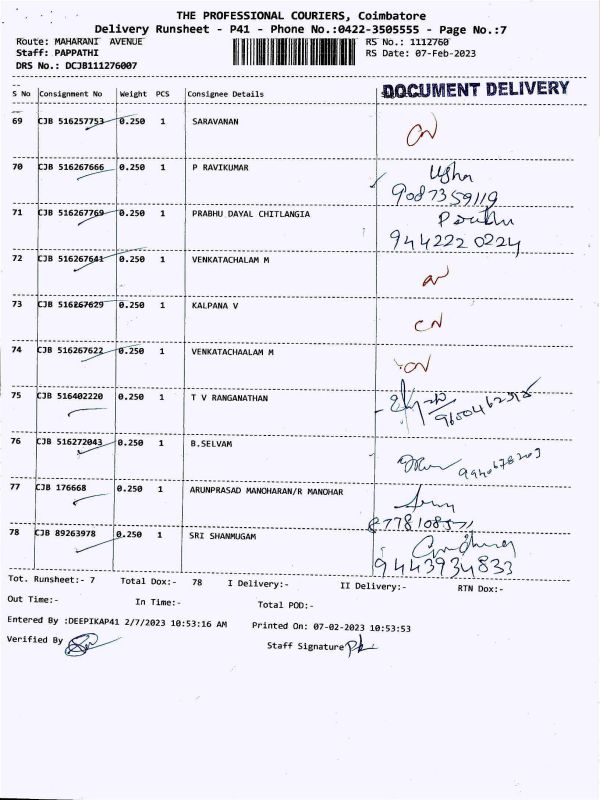 THE PROFESSIONAL COURIERS, Coimbatore
Delivery Runsheet - P41 - Phone No.:0422-3505555 - Page No.:7
Route: MAHARANI AVENUE RS No.: 1112760
Staff: PAPPATHI RS Date: 07-Feb-2023
DRS No.: DCJB111276007
DOCUMENT DELIVERY
S No Consignment No Weight PCS Consignee Details
69 CJB 516257753 0.250 1 SARAVANAN
70 CJB 516267666 0.250 1 P RAVIKUMAR Usha
9087359119
71 CJB 516267769 0.250 1 PRABHU DAYAL CHITLANGIA
9442220224
72 CJB 516267641 0.250 1 VENKATACHALAM M
73 CJB 516267629 0.250 1 KALPANA V CN
74 CJB 516267622 0.250 1 VENKATACHAALAM M
75 CJB 516402220 0.250 1 T V RANGANATHAN
76 CJB 516272043 0.250 1 B.SELVAM
77 CJB 176668 0.250 1 ARUNPRASAD MANOHARAN/R MANOHAR
78 CJB 89263978 0.250 1 SRI SHANMUGAM
9443934833
Tot. Runsheet:- 7 Total Dox:- 78 I Delivery:- II Delivery:- RTN Dox:-
Out Time:- In Time:- Total POD:-
Entered By :DEEPIKAP41 2/7/2023 10:53:16 AM Printed On: 07-02-2023 10:53:53
Verified By Staff Signature